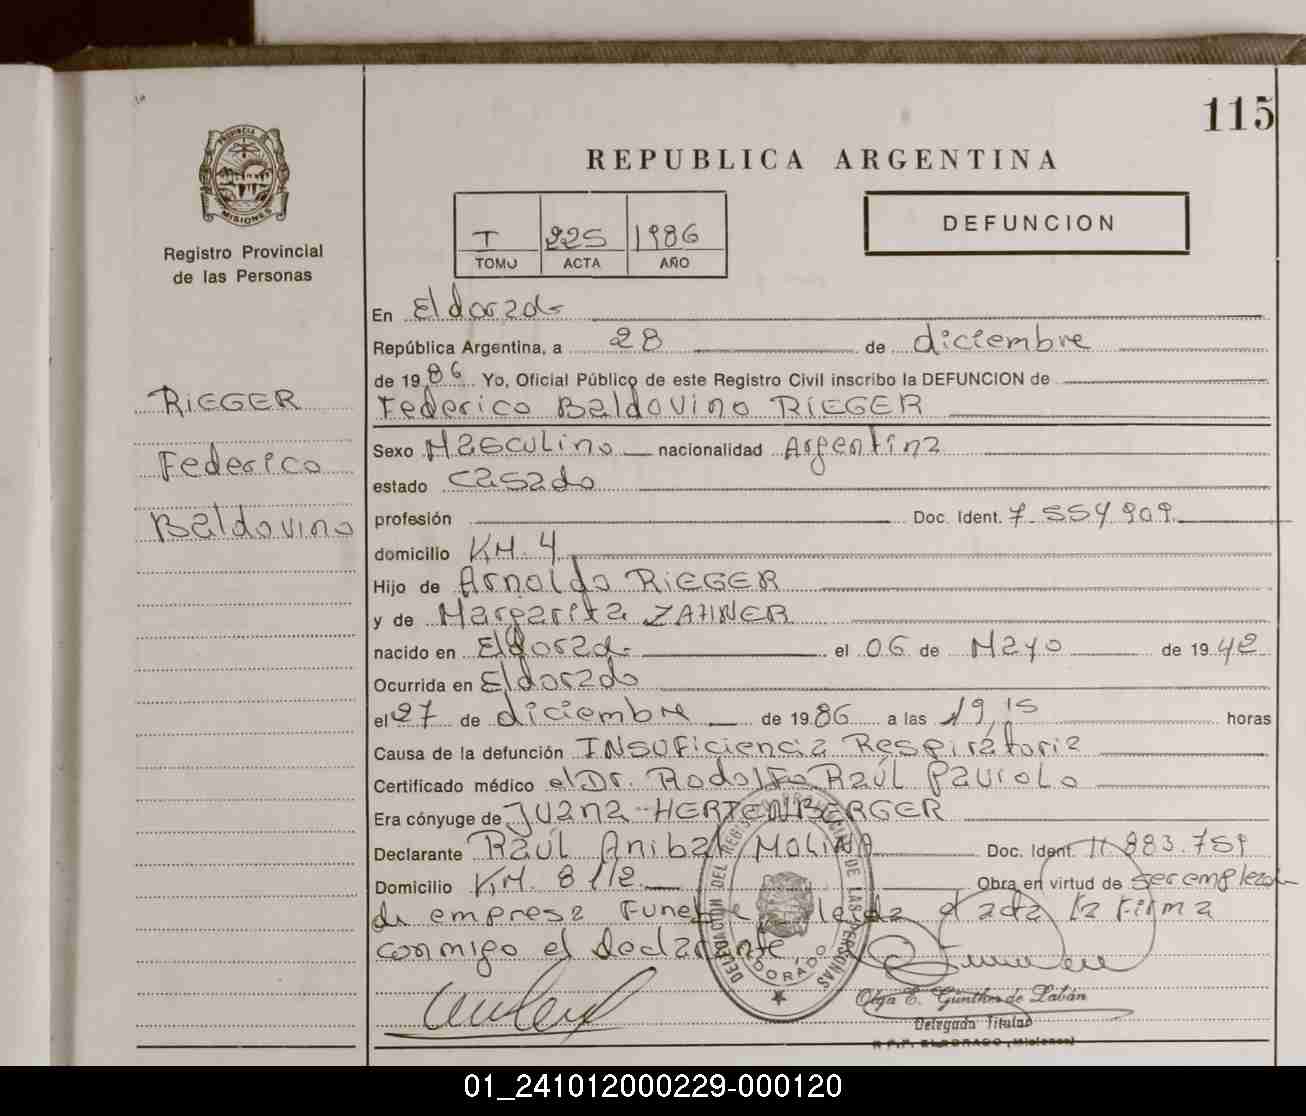 115
PROVINCIA DE
MISIONES
Registro Provincial
de las Personas
REPUBLICA ARGENTINA
DEFUNCION
T 225 1986
TOMO ACTA AÑO
En Eldorado
República Argentina, a 28 de diciembre
de 1986 Yo, Oficial Público de este Registro Civil inscribo la DEFUNCION de
RIEGER
Federico
Baldovino
Federico Baldovino RIEGER
Sexo Masculino nacionalidad Argentina
estado casado
profesión Doc. Ident. 7.554.909
domicilio KM. 4
Hijo de Arnoldo RIEGER
y de Margarita ZAHNER
nacido en Eldorado el 06 de Mayo de 1942
Ocurrida en Eldorado
el 27 de diciembre de 1986 a las 19,15 horas
Causa de la defunción Insuficiencia Respiratoria
Certificado médico el Dr. Rodolfo Raúl
Era cónyuge de Juana HERTENBERGER
Declarante Raúl Anibal MOLINA Doc. Ident. 11.883.759
Domicilio KM. 8 1/2 Obra en virtud de ser empleado
de empresa Funebre leida el acta la firma
conmigo el declarante,
DELEGACION DEL REGISTRO PROVINCIAL DE LAS PERSONAS
ELDORADO
Olga E. Günther de Labán
Delegada Titular
R.P.P. ELDORADO (Misiones)
01_241012000229-000120